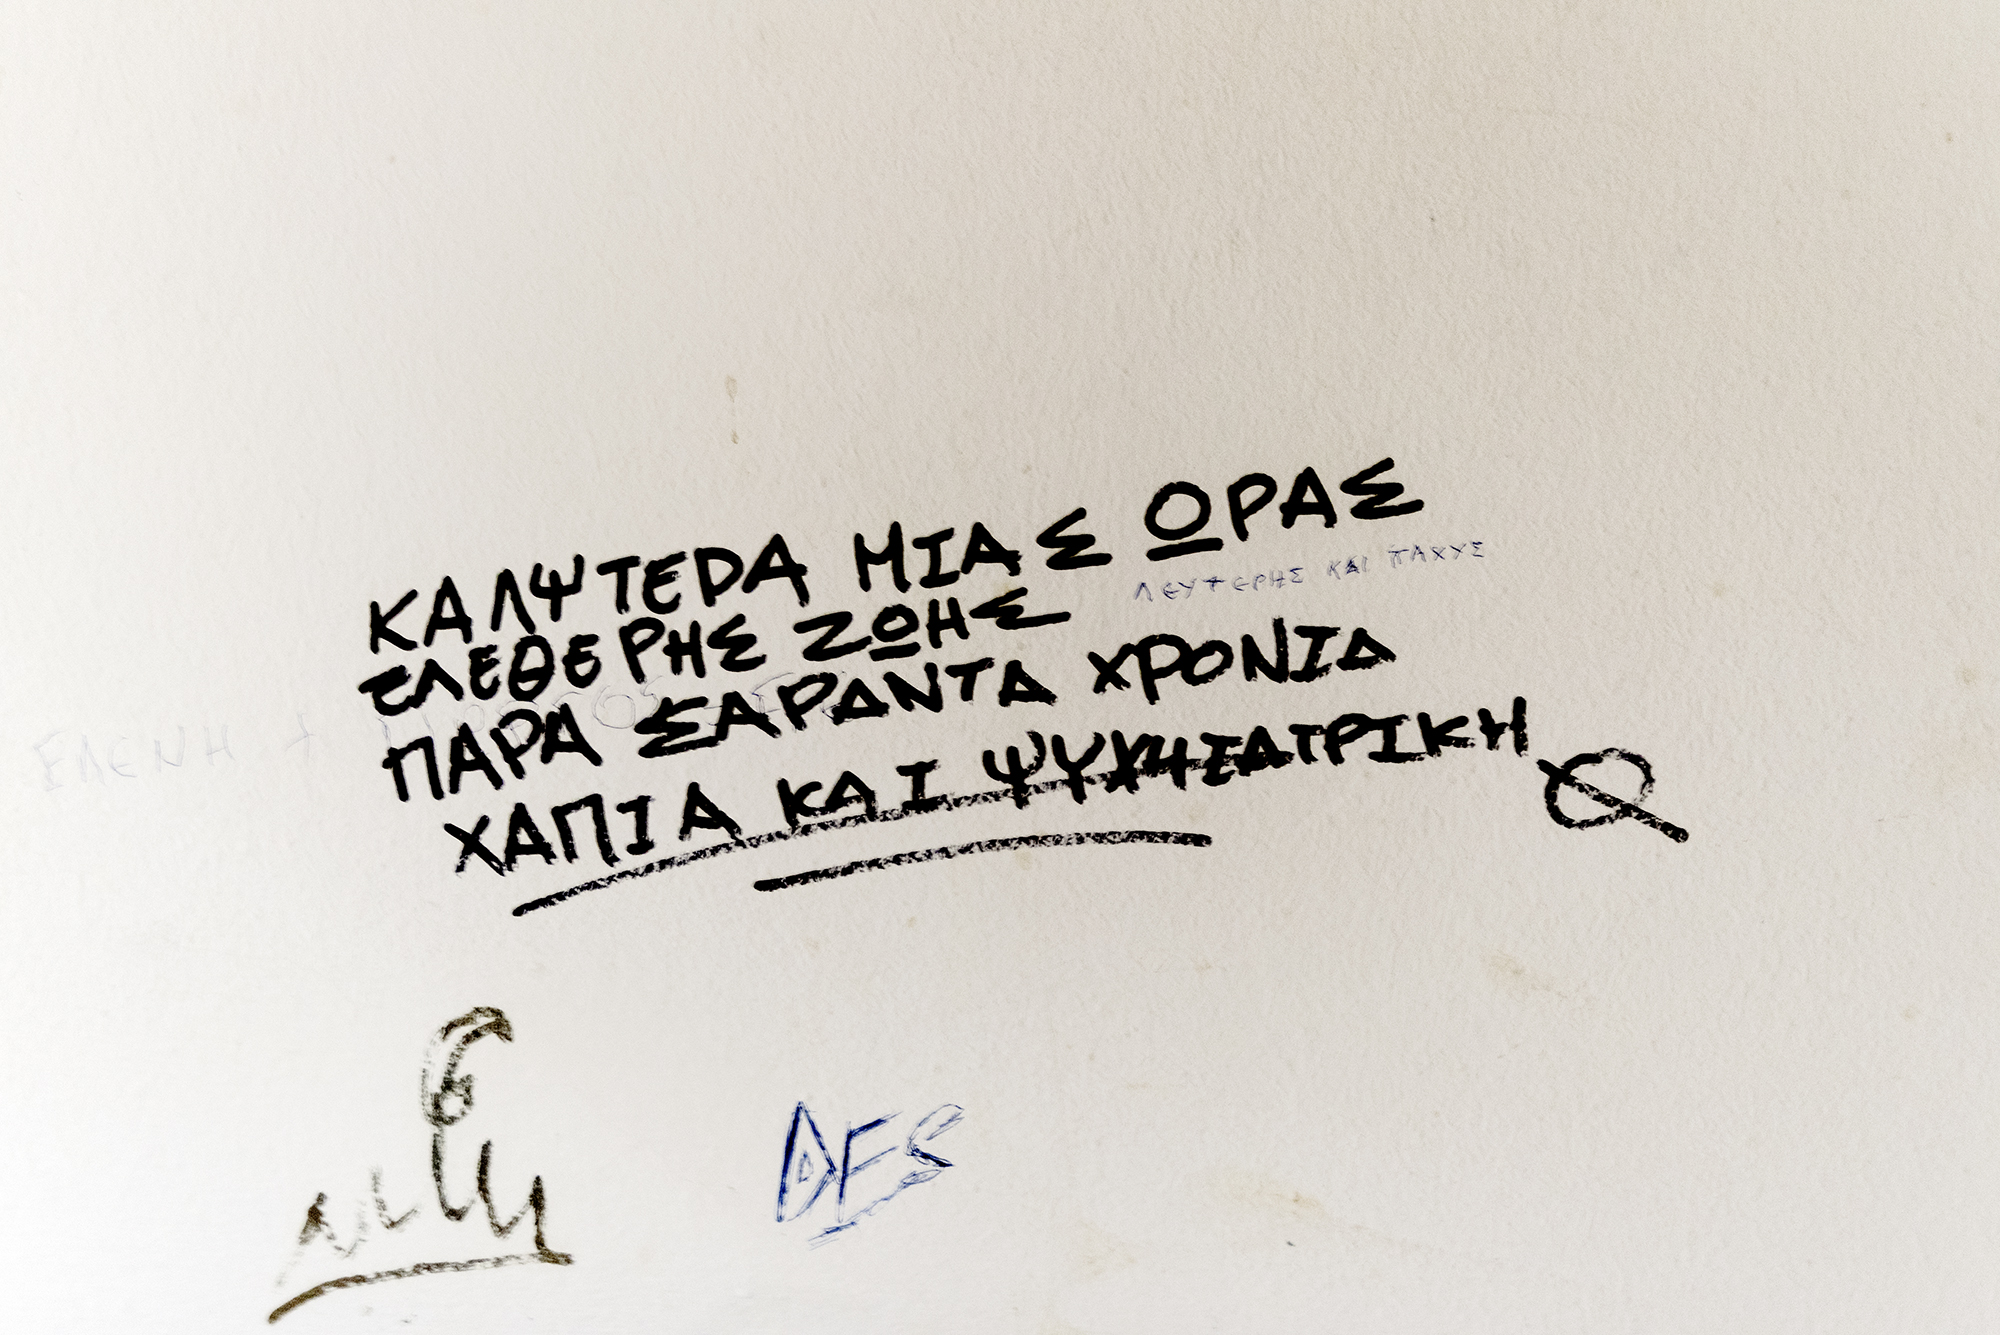 ΚΑΛΨΤΕΡΑ ΜΙΑΣ ΩΡΑΣ
ΛΕΥΤΕΡΗΣ ΚΑΙ ΠΑΧΥΣ
ΕΛΕΘΕΡΗΣ ΖΩΗΣ
ΠΑΡΑ ΣΑΡΑΝΤΑ ΧΡΟΝΙΑ
ΕΛΕΝΗ +
ΧΑΠΙΑ ΚΑΙ ΨΥΧΗΙΑΤΡΙΚΗ